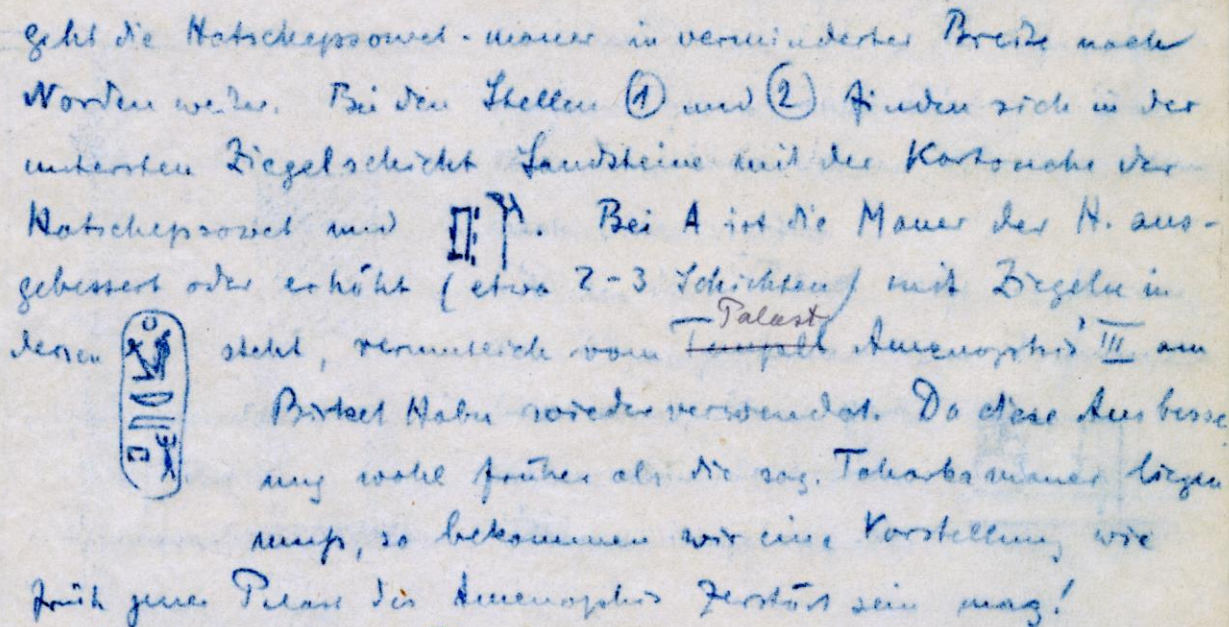 geht die Hatschepsowet-mauer in verminderter Breite nach
Norden weiter. Bei den Stellen ① und ② finden sich in der
untersten Ziegelschicht Sandsteine mit der Kartouche der
Hatschepsowet und . Bei A ist die Mauer der H. aus-
gebessert oder erhöht (etwa 2-3 Schichten) mit Ziegeln in
Palast
deren steht, vermutlich vom Tempel Amenophis' III am
Birket Habu wiederverwendet. Da diese Ausbesse
ung wohl früher als die sog. Taharkamauer liegen
muss, so bekommen wir eine Vorstellung wie
früh jener Palast des Amenophis zerstört sein mag!